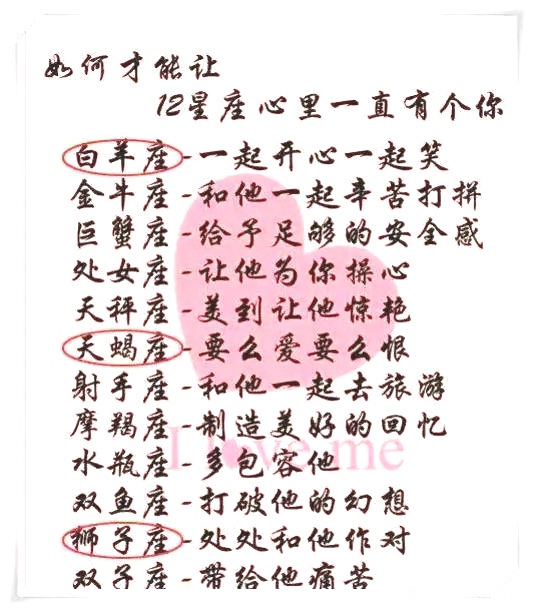 如何才能让
12星座心里一直有个你
白羊座-一起开心一起笑
金牛座-和他一起辛苦打拼
巨蟹座-给予足够的安全感
处女座-让他为你操心
天秤座-美到让他惊艳
天蝎座-要么爱要么恨
射手座-和他一起去旅游
摩羯座-制造美好的回忆
I love me
水瓶座-多包容他
双鱼座-打破他的幻想
狮子座-处处和他作对
双子座-带给他痛苦